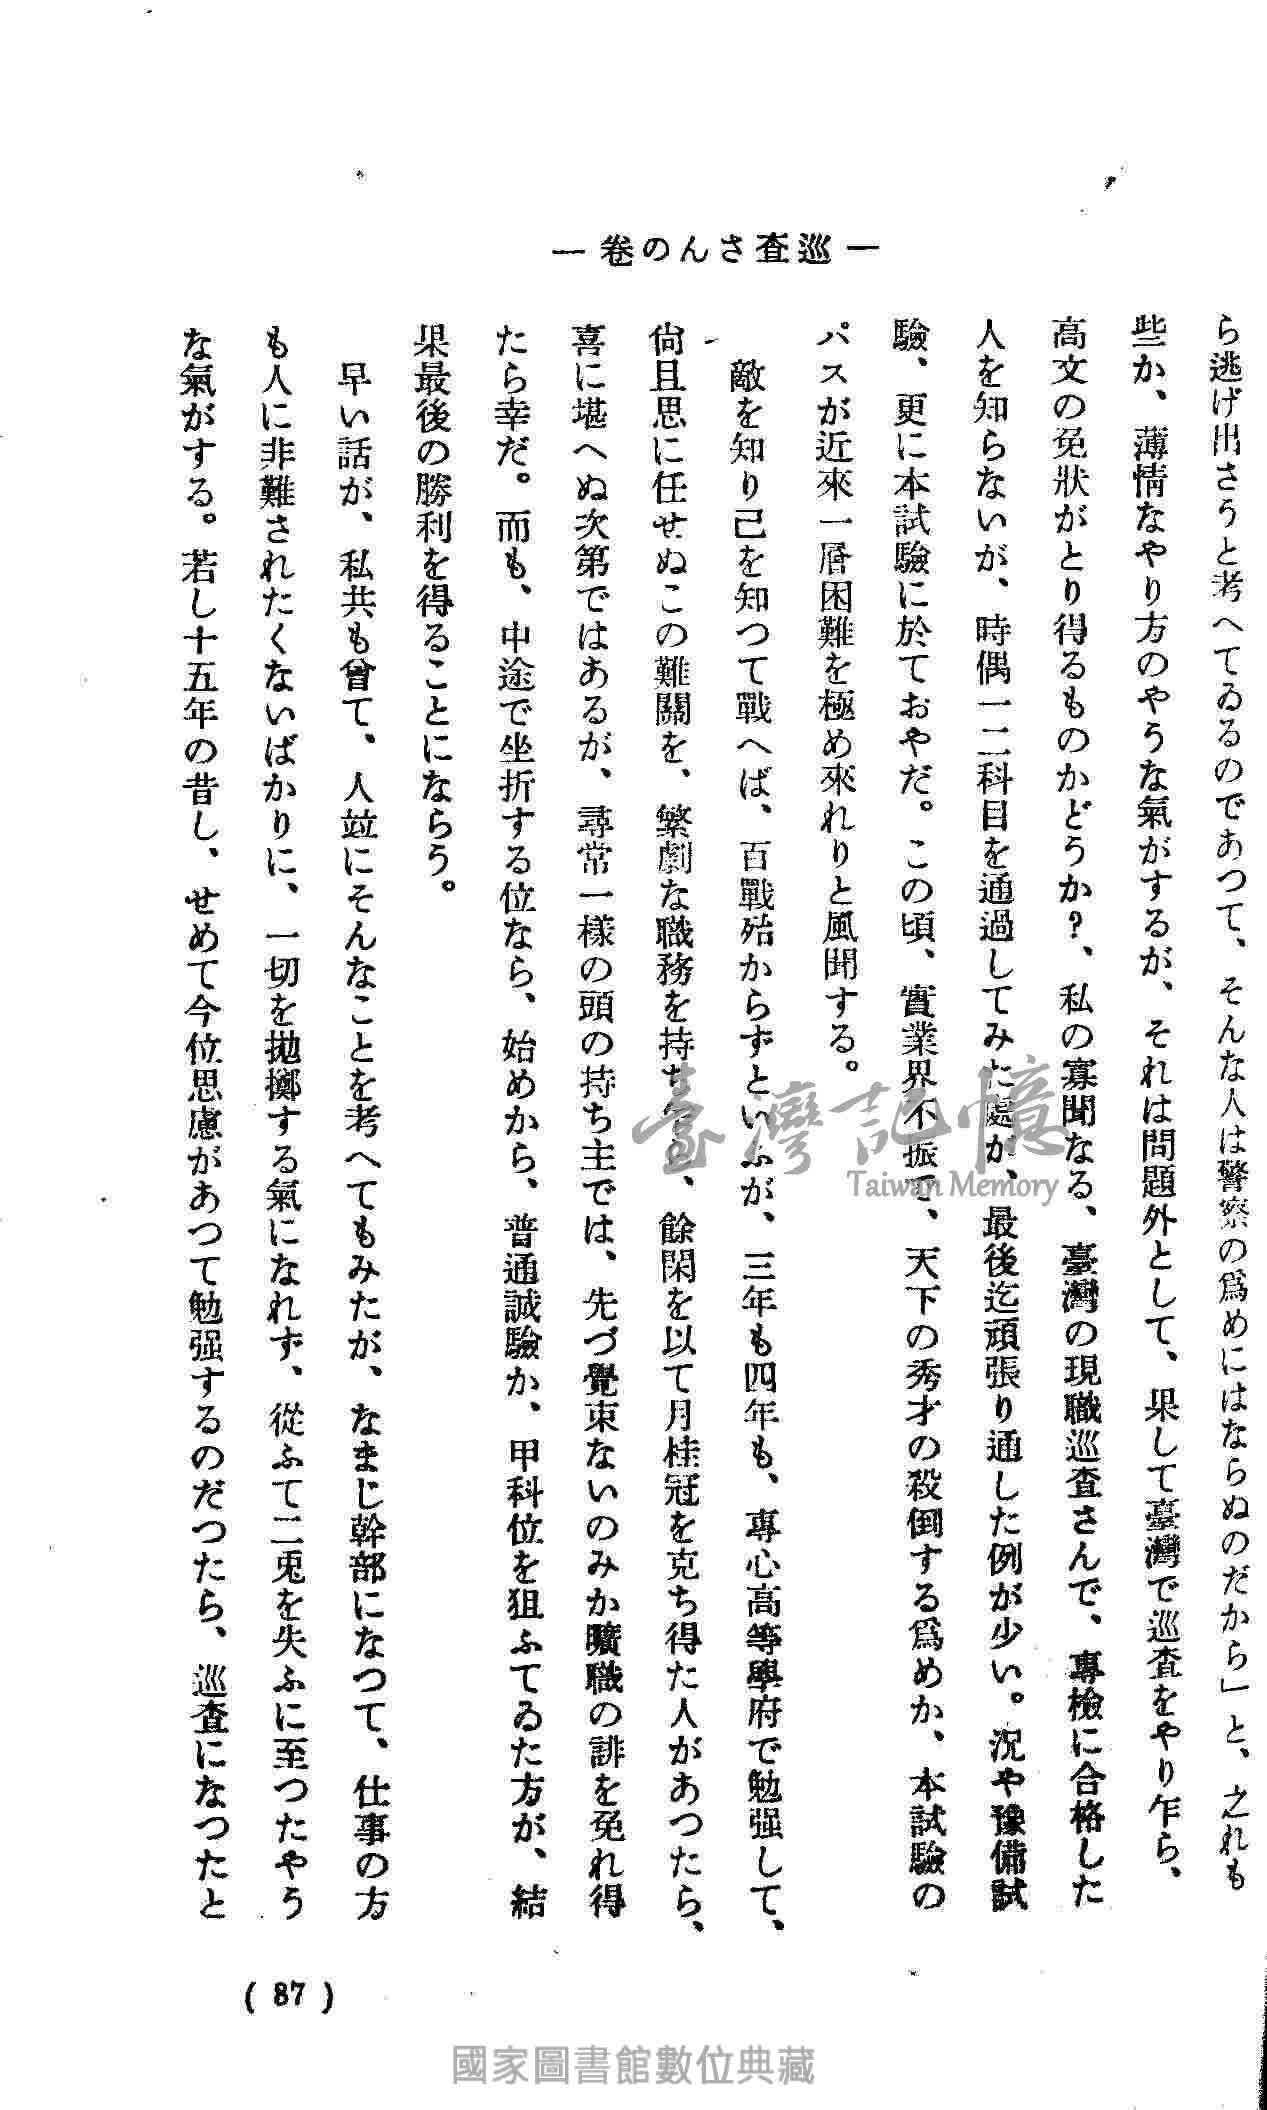 ― 巡査さんの卷 ―
ら逃げ出さうと考へてゐるのであつて、そんな人は警察の爲めにはならぬのだから」と、之れも
些か、薄情なやり方のやうな氣がするが、それは問題外として、果して臺灣で巡査をやり乍ら、
高文の免狀がとり得るものかどうか?、私の寡聞なる、臺灣の現職巡査さんで、專檢に合格した
人を知らないが、時偶一二科目を通過してみた處が、最後迄頑張り通した例が少い。況や豫備試
驗、更に本試驗に於ておやだ。この頃、實業界不振で、天下の秀才の殺倒する爲めか、本試驗の
パスが近來一層困難を極め來れりと風聞する。
敵を知り己を知つて戰へば、百戰殆からずといふが、三年も四年も、專心高等學府で勉强して、
尙且思に任せぬこの難關を、繁劇な職務を持ち、餘閑を以て月桂冠を克ち得た人があつたら、
喜に堪へぬ次第ではあるが、尋常一樣の頭の持ち主では、先づ覺束ないのみか曠職の誹を免れ得
たら幸だ。而も、中途で坐折する位なら、始めから、普通誠驗か、甲科位を狙ふてゐた方が、結
果最後の勝利を得ることにならう。
早い話が、私共も曾て、人竝にそんなことを考へてもみたが、なまじ幹部になつて、仕事の方
も人に非難されたくないばかりに、一切を拋擲する氣になれず、從ふて二兎を失ふに至つたやう
な氣がする。若し十五年の昔し、せめて今位思慮があつて勉强するのだつたら、巡査になつたと
( 87 )
臺灣記憶
Taiwan Memory
國家圖書館數位典藏